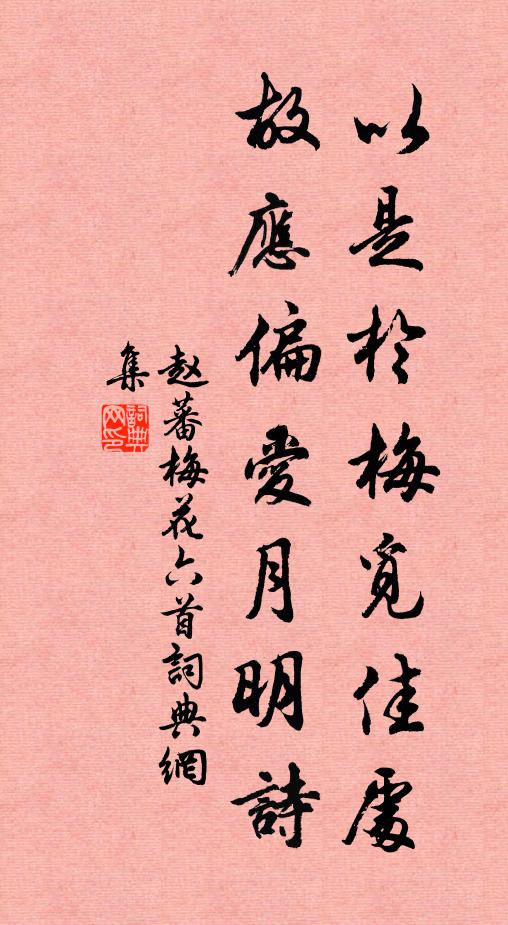 以是於梅覓佳處
故應偏愛月明詩
赵蕃梅花六首詞典網
集
詞典
网印